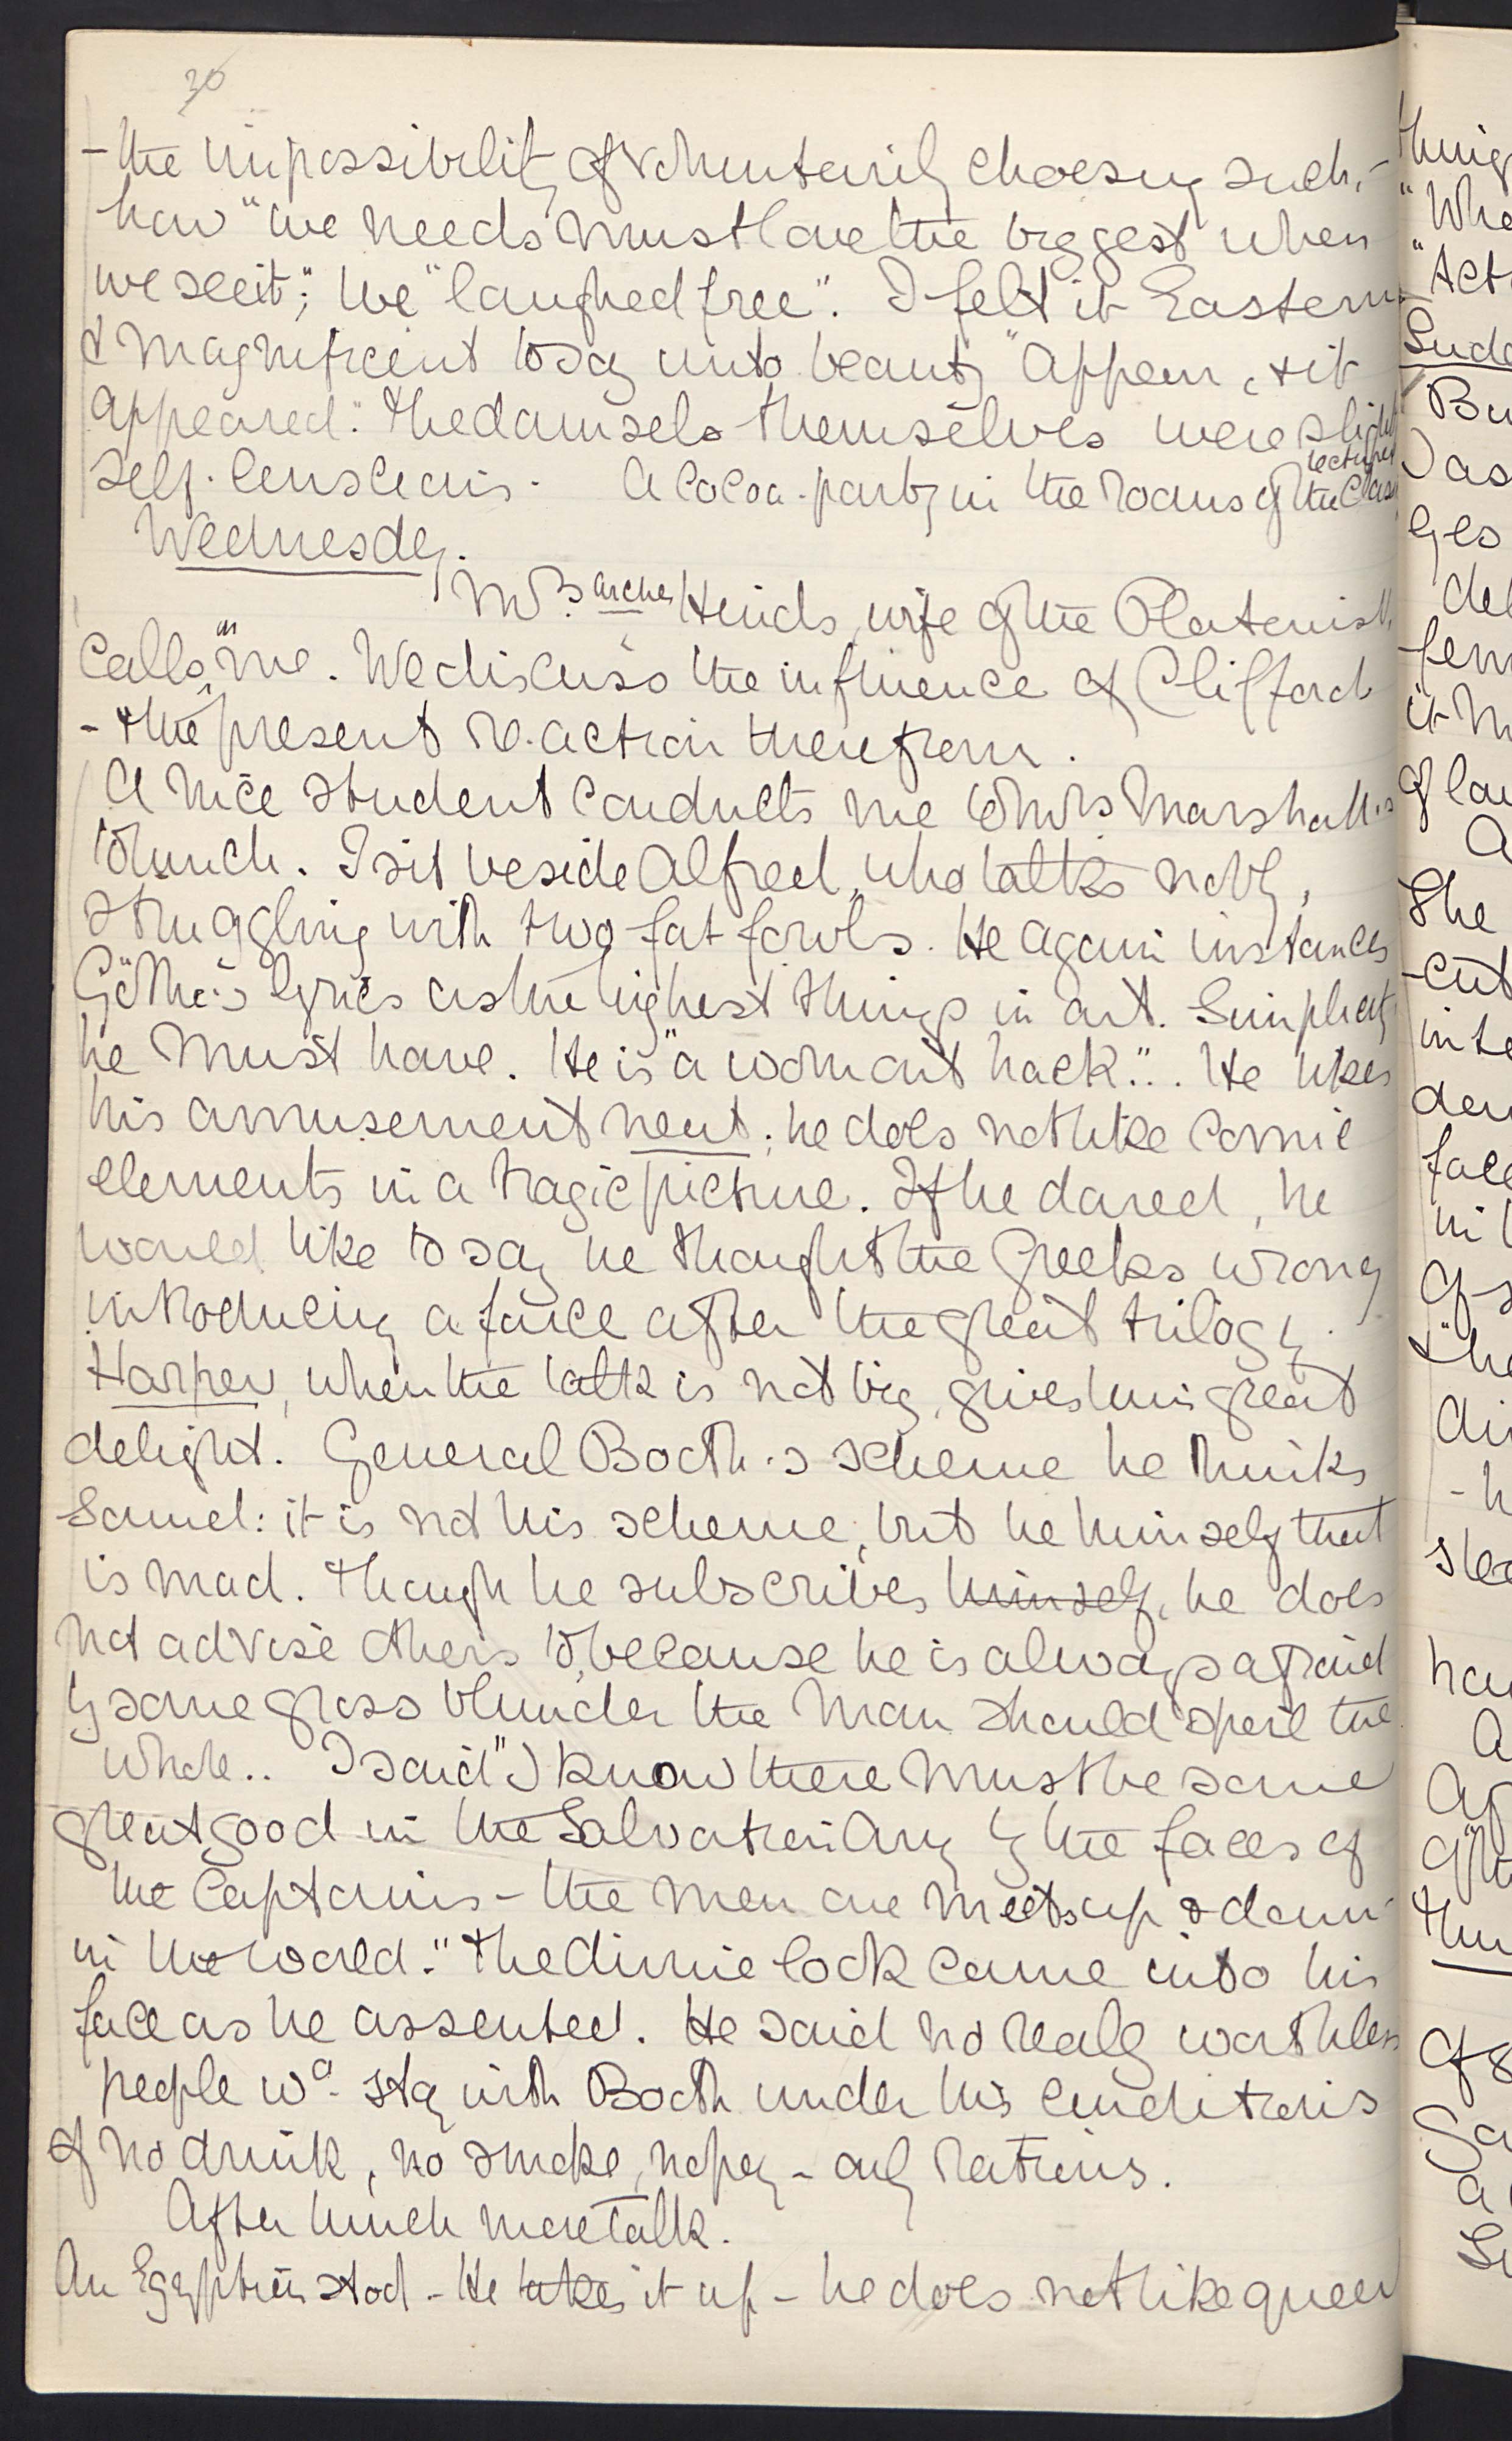 30
- the impossibility of voluntarily choosing such, -
how "we needs must love the biggest when
we see it"; we "laughed free". I felt it Eastern
& magnificent to say unto beauty "Appear, & it
appeared." The damsels themselves were slightly
self-conscious. A cocoa-party in the rooms of the Class
lecturer
Wednesday.
Mrs. Archer Hinds, wife of the Platonist,
calls on me. We discuss the influence of Clifford
- & the present re-action therefrom.
A nice student conducts me to Mrs Marshall's
to lunch. I sit beside Alfred, who talks nobly,
struggling with two fat fowls. He again instances
Göthe's lyrics as the highest things in art. Simplicity
he must have. He is "a wornout hack"... He likes
his amusement neat; he does not like comic
elements in a tragic picture. If he dared, he
would like to say he thought the Greeks wrong
introducing a farce after the great trilogy.
Harper, when the talk is not big, gives him great
delight. General Booth's scheme he thinks
sound: it is not his scheme, but he himself that
is mad. Though he subscribes himself, he does
not advise others to, because he is always afraid
by some gross blunder the man should spoil the
whole.. I said "I know there must be some
great good in the Salvation Army by the faces of
the Captains - the men one meets up & down
in the world." The divine look came into his
face as he assented. He said no really worthless
people wd. stay with Booth under his conditions
of no drink, no smoke, no pay - only rations.
After lunch more talk.
An Egyptian stool - He takes it up - he does not like queer
thing
"Whe
"Act
Sudd
Bu
I as
eyes
del
fem
it m
of lau
A
She
- cut
inte
den
face
in l
of s
& he
di
- h
slee
hau
A
Ap
of th
thin
of 8
Sa
a